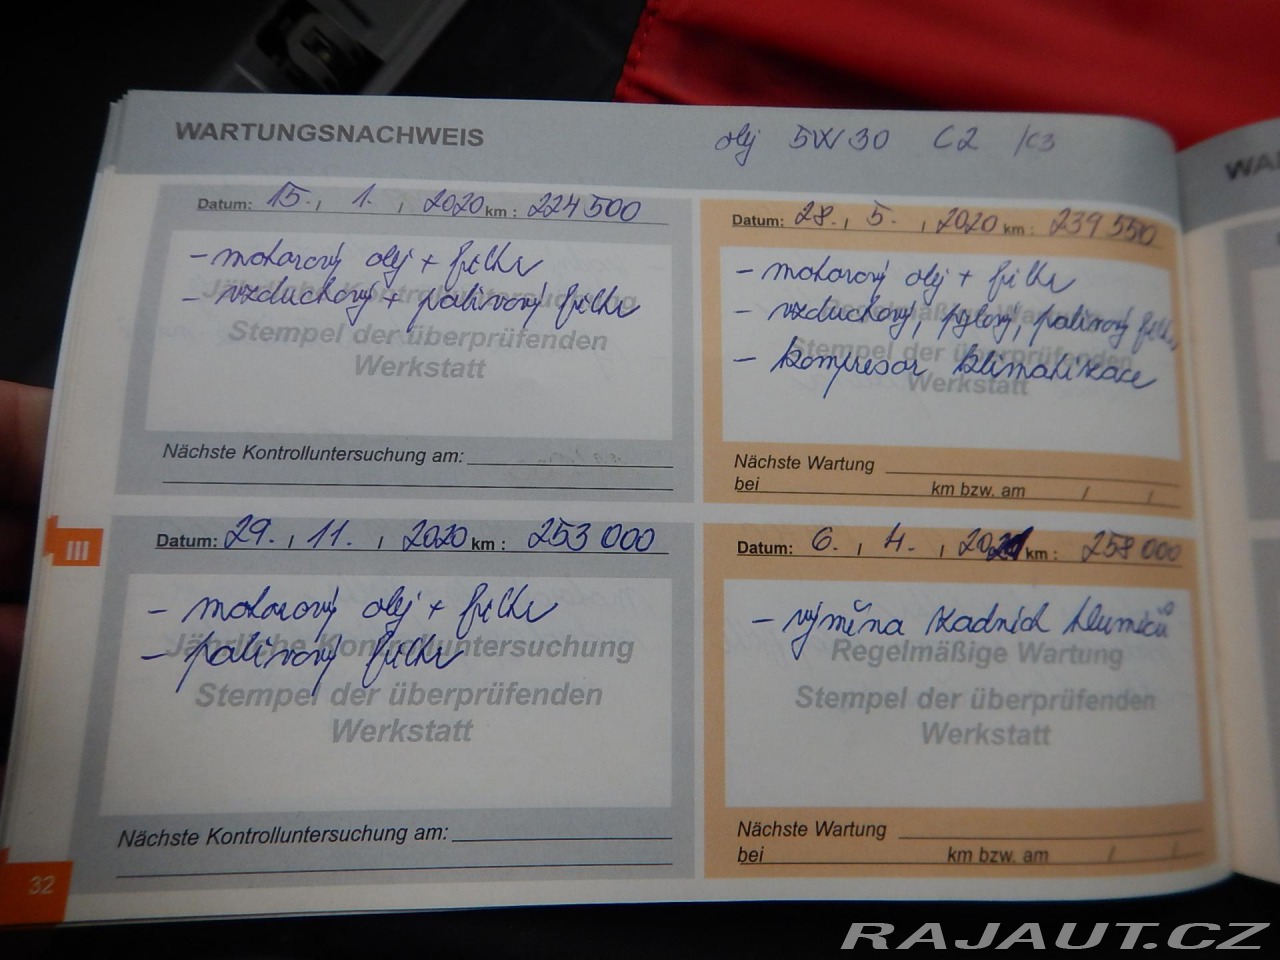 WARTUNGSNACHWEIS
olej 5W30 C2 /C3
Datum: 15. , 1. , 2020 km : 224 500
- motorový olej + filtr
- vzduchový + palivový filtr
Jährliche Kontrolluntersuchung
Stempel der überprüfenden
Werkstatt
Nächste Kontrolluntersuchung am:
Datum: 28. , 5. , 2020 km : 239 550
- motorový olej + filtr
- vzduchový, pylový, palivový filtr
- kompresor klimatizace
Regelmäßige Wartung
Stempel der überprüfenden
Werkstatt
Nächste Wartung
bei km bzw. am / /
III
Datum: 29. , 11. , 2020 km : 253 000
- motorový olej + filtr
- palivový filtr
Jährliche Kontrolluntersuchung
Stempel der überprüfenden
Werkstatt
Nächste Kontrolluntersuchung am:
Datum: 6. , 4. , 2021 km : 258 000
- výměna zadních tlumičů
Regelmäßige Wartung
Stempel der überprüfenden
Werkstatt
Nächste Wartung
bei km bzw. am / /
32
WAR
RAJAUT.CZ